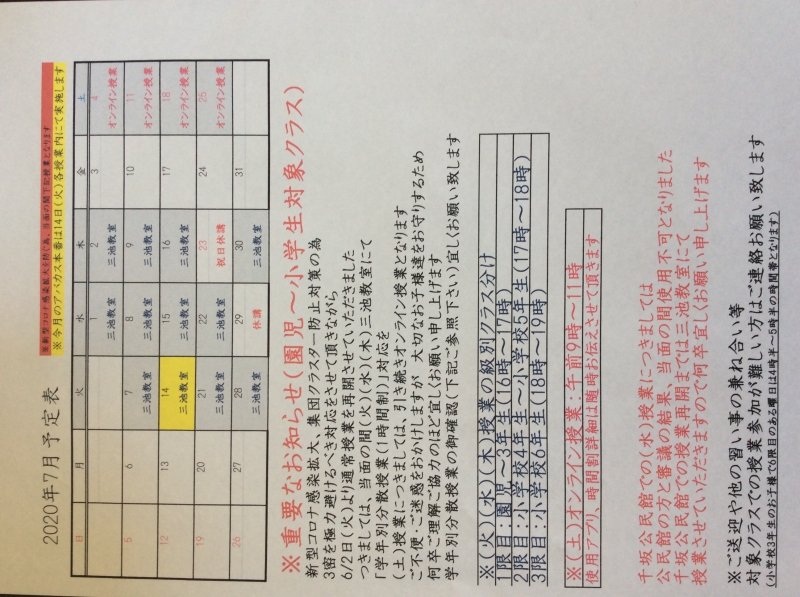 2020年7月予定表
※新型コロナ感染拡大予防の為、当面の間下記授業となります
※今月のアバカス本番は14日(火)各授業内にて実施します
日 月 火 水 木 金 土
1 2 3 4
三池教室 三池教室 オンライン授業
5 6 7 8 9 10 11
三池教室 三池教室 三池教室 オンライン授業
12 13 14 15 16 17 18
三池教室 三池教室 三池教室 オンライン授業
19 20 21 22 23 24 25
三池教室 三池教室 祝日休講 オンライン授業
26 27 28 29 30 31
三池教室 休講 三池教室
※重要なお知らせ(園児～小学生対象クラス)
新型コロナ感染拡大、集団クラスター防止対策の為
3密を極力避けるべき対応をさせて頂きながら
6/2日(火)より通常授業を再開させていただきました
つきましては、当面の間(火)(水)(木)三池教室にて
「学年別分散授業(1時間制)」対応を
(土)授業につきましては、引き続きオンライン授業となります
ご不便・ご迷惑をおかけしますが 大切なお子様達をお守りするため
何卒ご理解ご協力のほど宜しくお願い申し上げます
学年別分散授業の御確認(下記ご参照下さい)宜しくお願い致します
※(火)(水)(木)授業の級別クラス分け
1限目:園児～3年生(16時～17時)
2限目:小学校4年生～小学校5年生(17時～18時)
3限目:小学校6年生(18時～19時)
※(土)オンライン授業:午前9時～11時
使用アプリ、時間割詳細は随時お伝えさせて頂きます
千坂公民館での(水)授業につきましては
公民館の方と審議の結果、当面の間使用不可となりました
千坂公民館での授業再開までは三池教室にて
授業させていただきますので何卒宜しくお願い申し上げます
※ご送迎や他の習い事の兼ね合い等
対象クラスでの授業参加が難しい方はご連絡お願い致します
(小学校3年生のお子様で6限目のある曜日は4時半～5時半の時間帯となります)